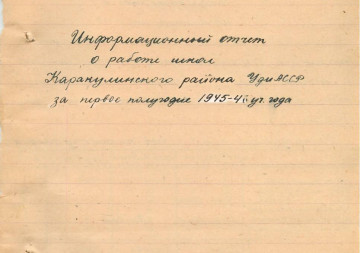 Информационный отчет
о работе школ
Каракулинского района УдмАССР
за первое полугодие 1945-46 уч. года